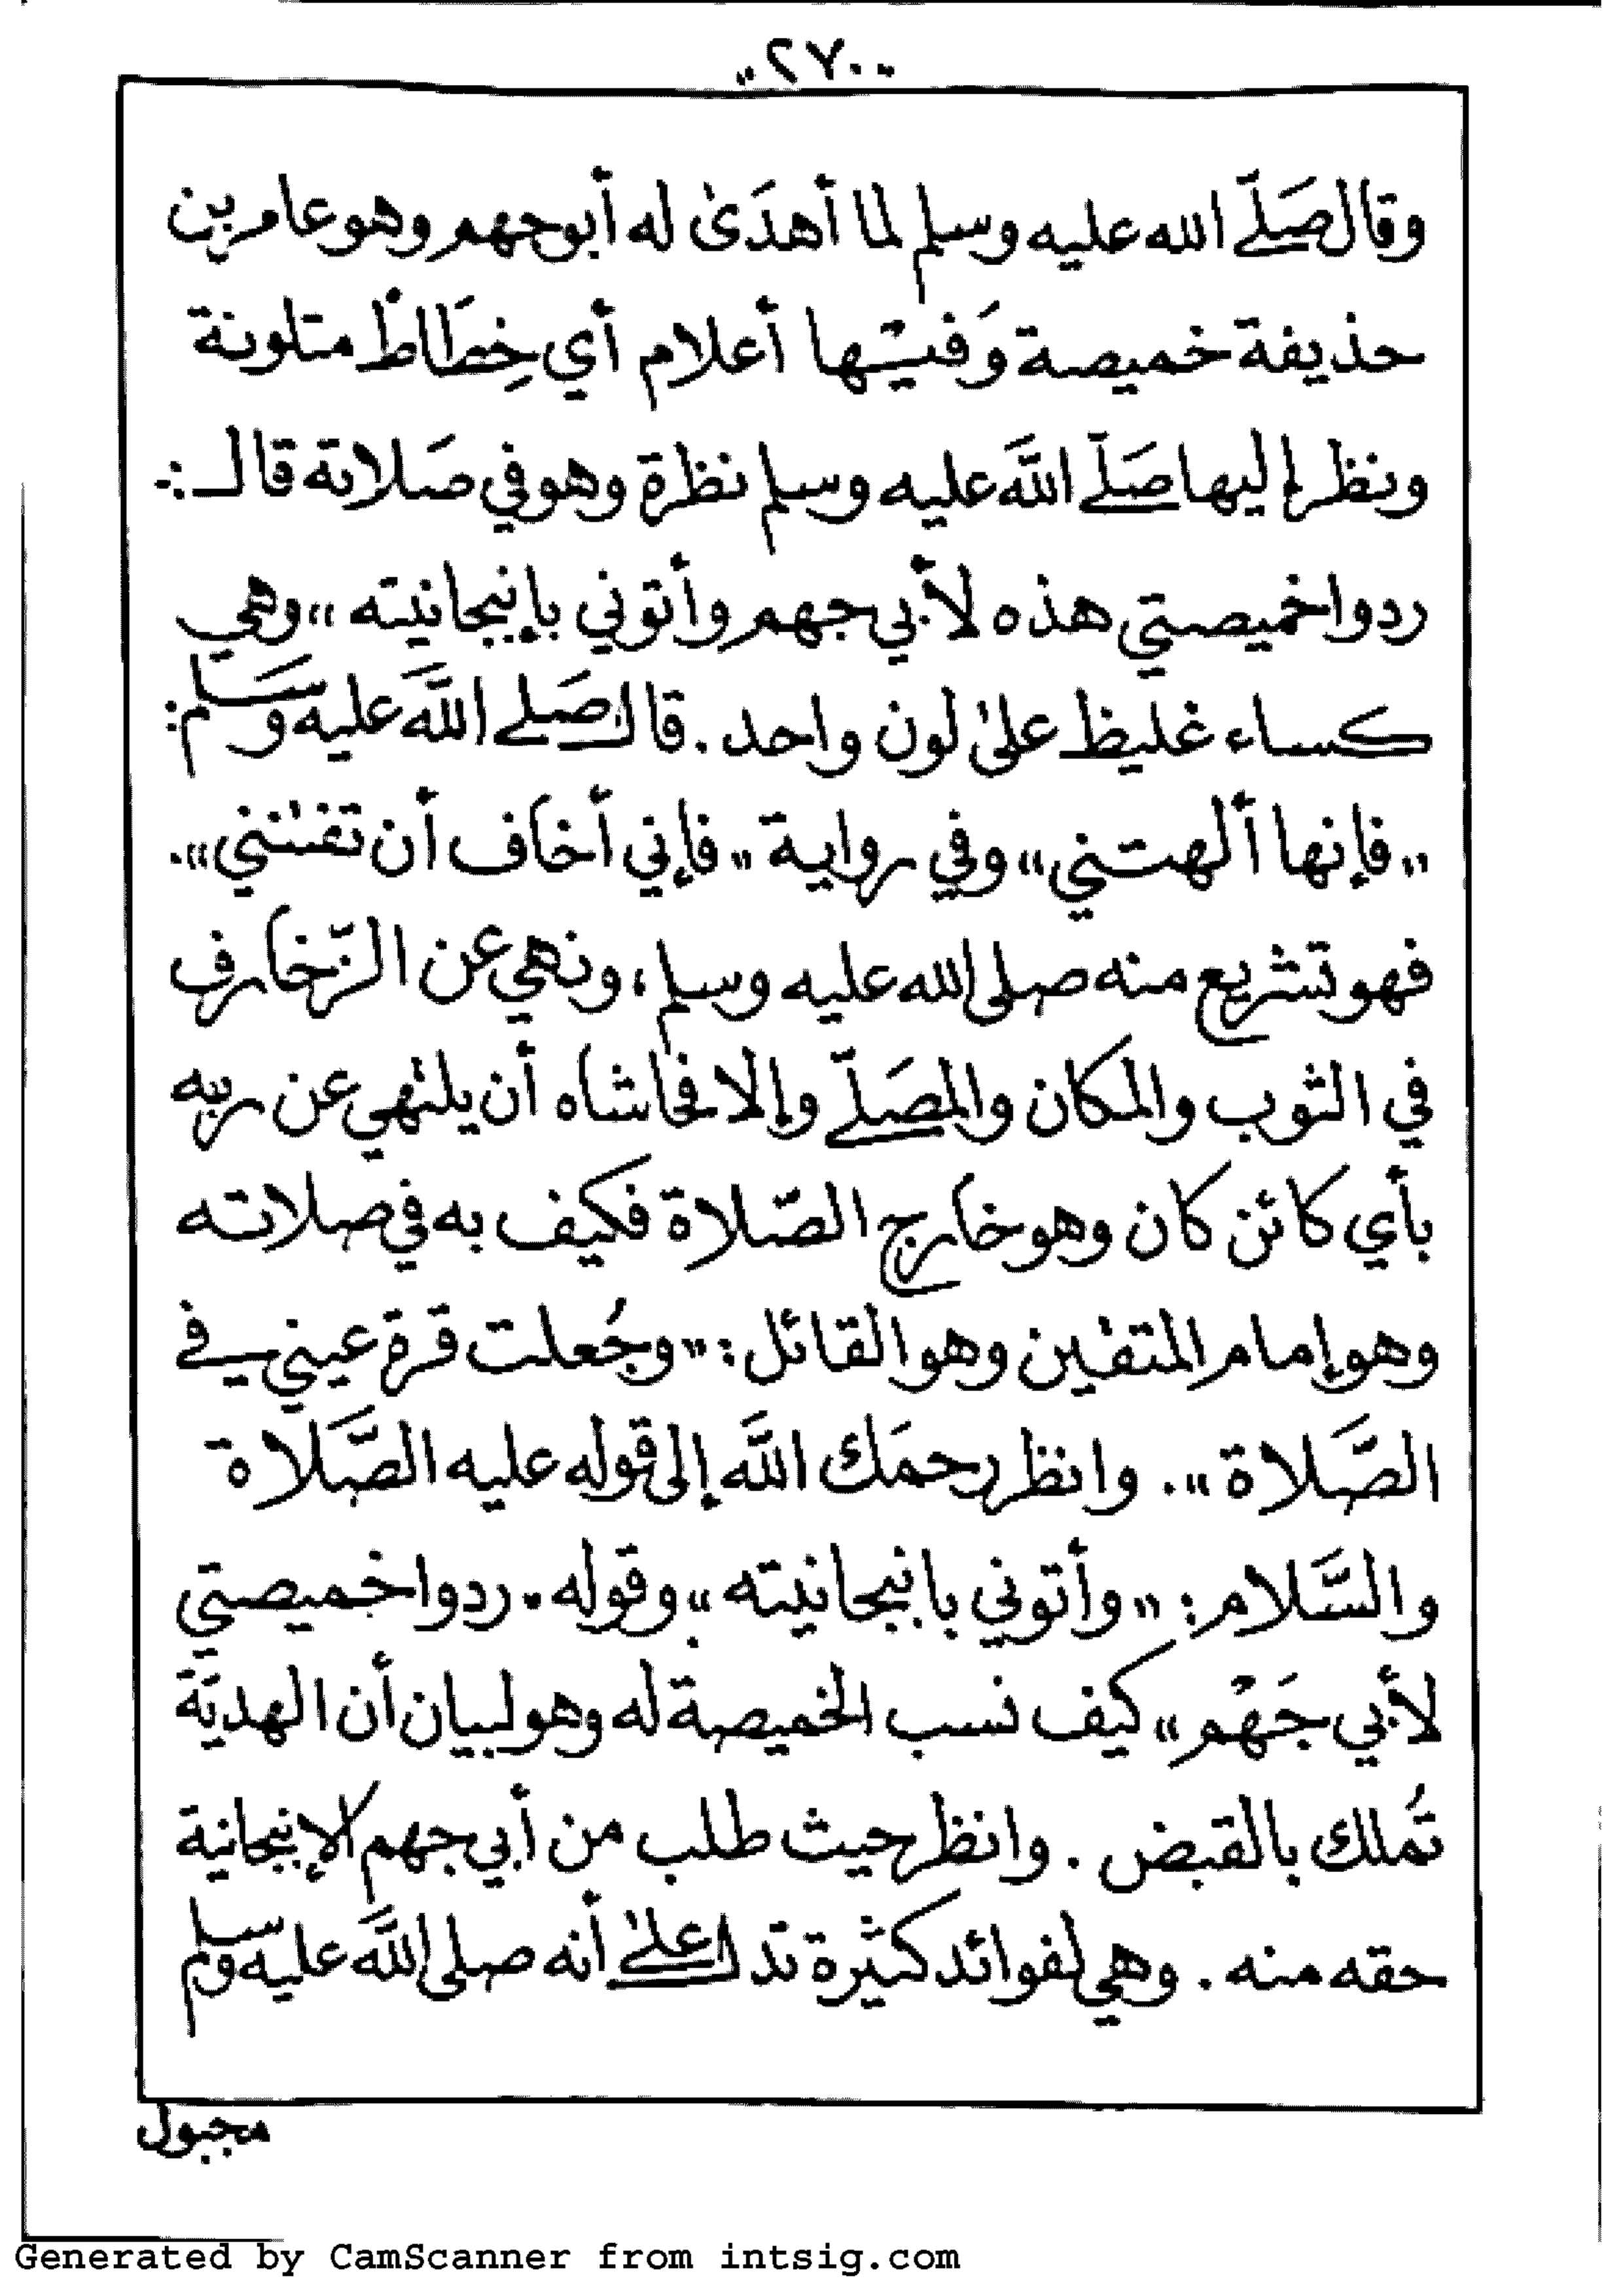 ٢٧٠
وقال صَلّے الله عليه وسلم لما أهدَىٰ له أبوجهم وهو عامر بن
حذيفة خميصة وَفيْها أعلام أي خِطَاطْ متلونة
ونظر إليها صَلّے اللَّه عليه وسلم نظرة وهو في صَلاته قال :-
ردوا خميصتي هذه لأبي جهم وأتوني بإنبجانيته „ وهي
كساء غليظ علىٰ لون واحد . قال صَلے اللَّه عليه وسَلم :
„ فإنها ألهتني „ وفي رواية „ فإني أخاف أن تفتنني „ .
فهو تشريع منه صلى الله عليه وسلم ، ونهي عن الزّخارف
في الثوب والمكان والمصَلّے وإلا فحاشاه أن يلتهي عن ربه
بأي كائن كان وهو خارج الصّلاة فكيف به في صلاته
وهو إمام المتقين وهو القائل : „ وجُعلت قرة عيني في
الصَّلاة „ . وانظر رحمَك اللَّه إلى قوله عليه الصَّلاة
والسَّلام : „ وأتوني بانبجانيته „ وقوله . ردوا خميصتي
لأبي جَهْم „ كيف نسب الخميصة له وهو لبيان أن الهديَة
تُملك بالقبض . وانظر حيث طلب من أبي جهم الإنبجانية
حقه منه . وهي لفوائد كثيرة تدل علىٰ أنه صلى اللَّه عليه وسلم
مجبول
Generated by CamScanner from intsig.com